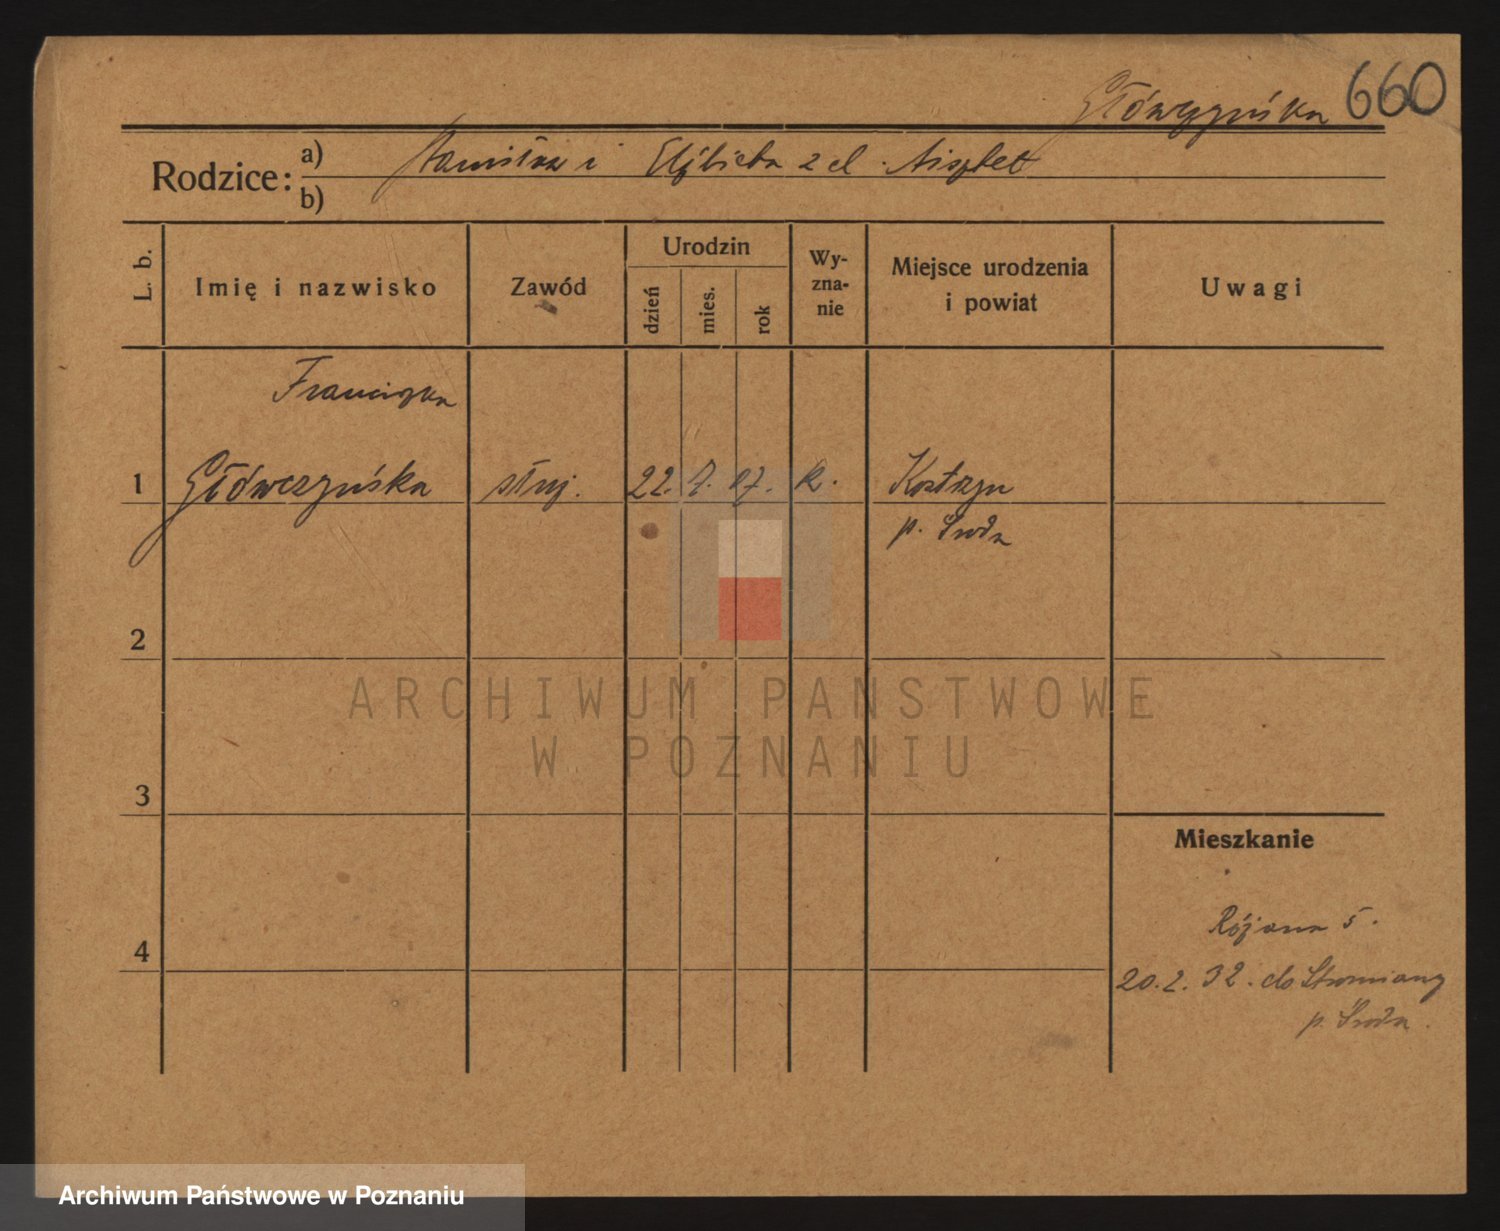 Główczyńska 660
Rodzice: a) Stanisław i Elżbieta z d.
b)
L. b.
Imię i nazwisko
Zawód
Urodzin
dzień
mies.
rok
Wy-
zna-
nie
Miejsce urodzenia
i powiat
Uwagi
Franciszka
1 Główczyńska służ. 22. 7. 07. k. Kostrzyn
p. Środa
2
ARCHIWUM PANSTWOWE
W POZNANIU
3
Mieszkanie
Różana 5.
4
20.2.32. do Strumiany
p. Środa.
Archiwum Państwowe w Poznaniu